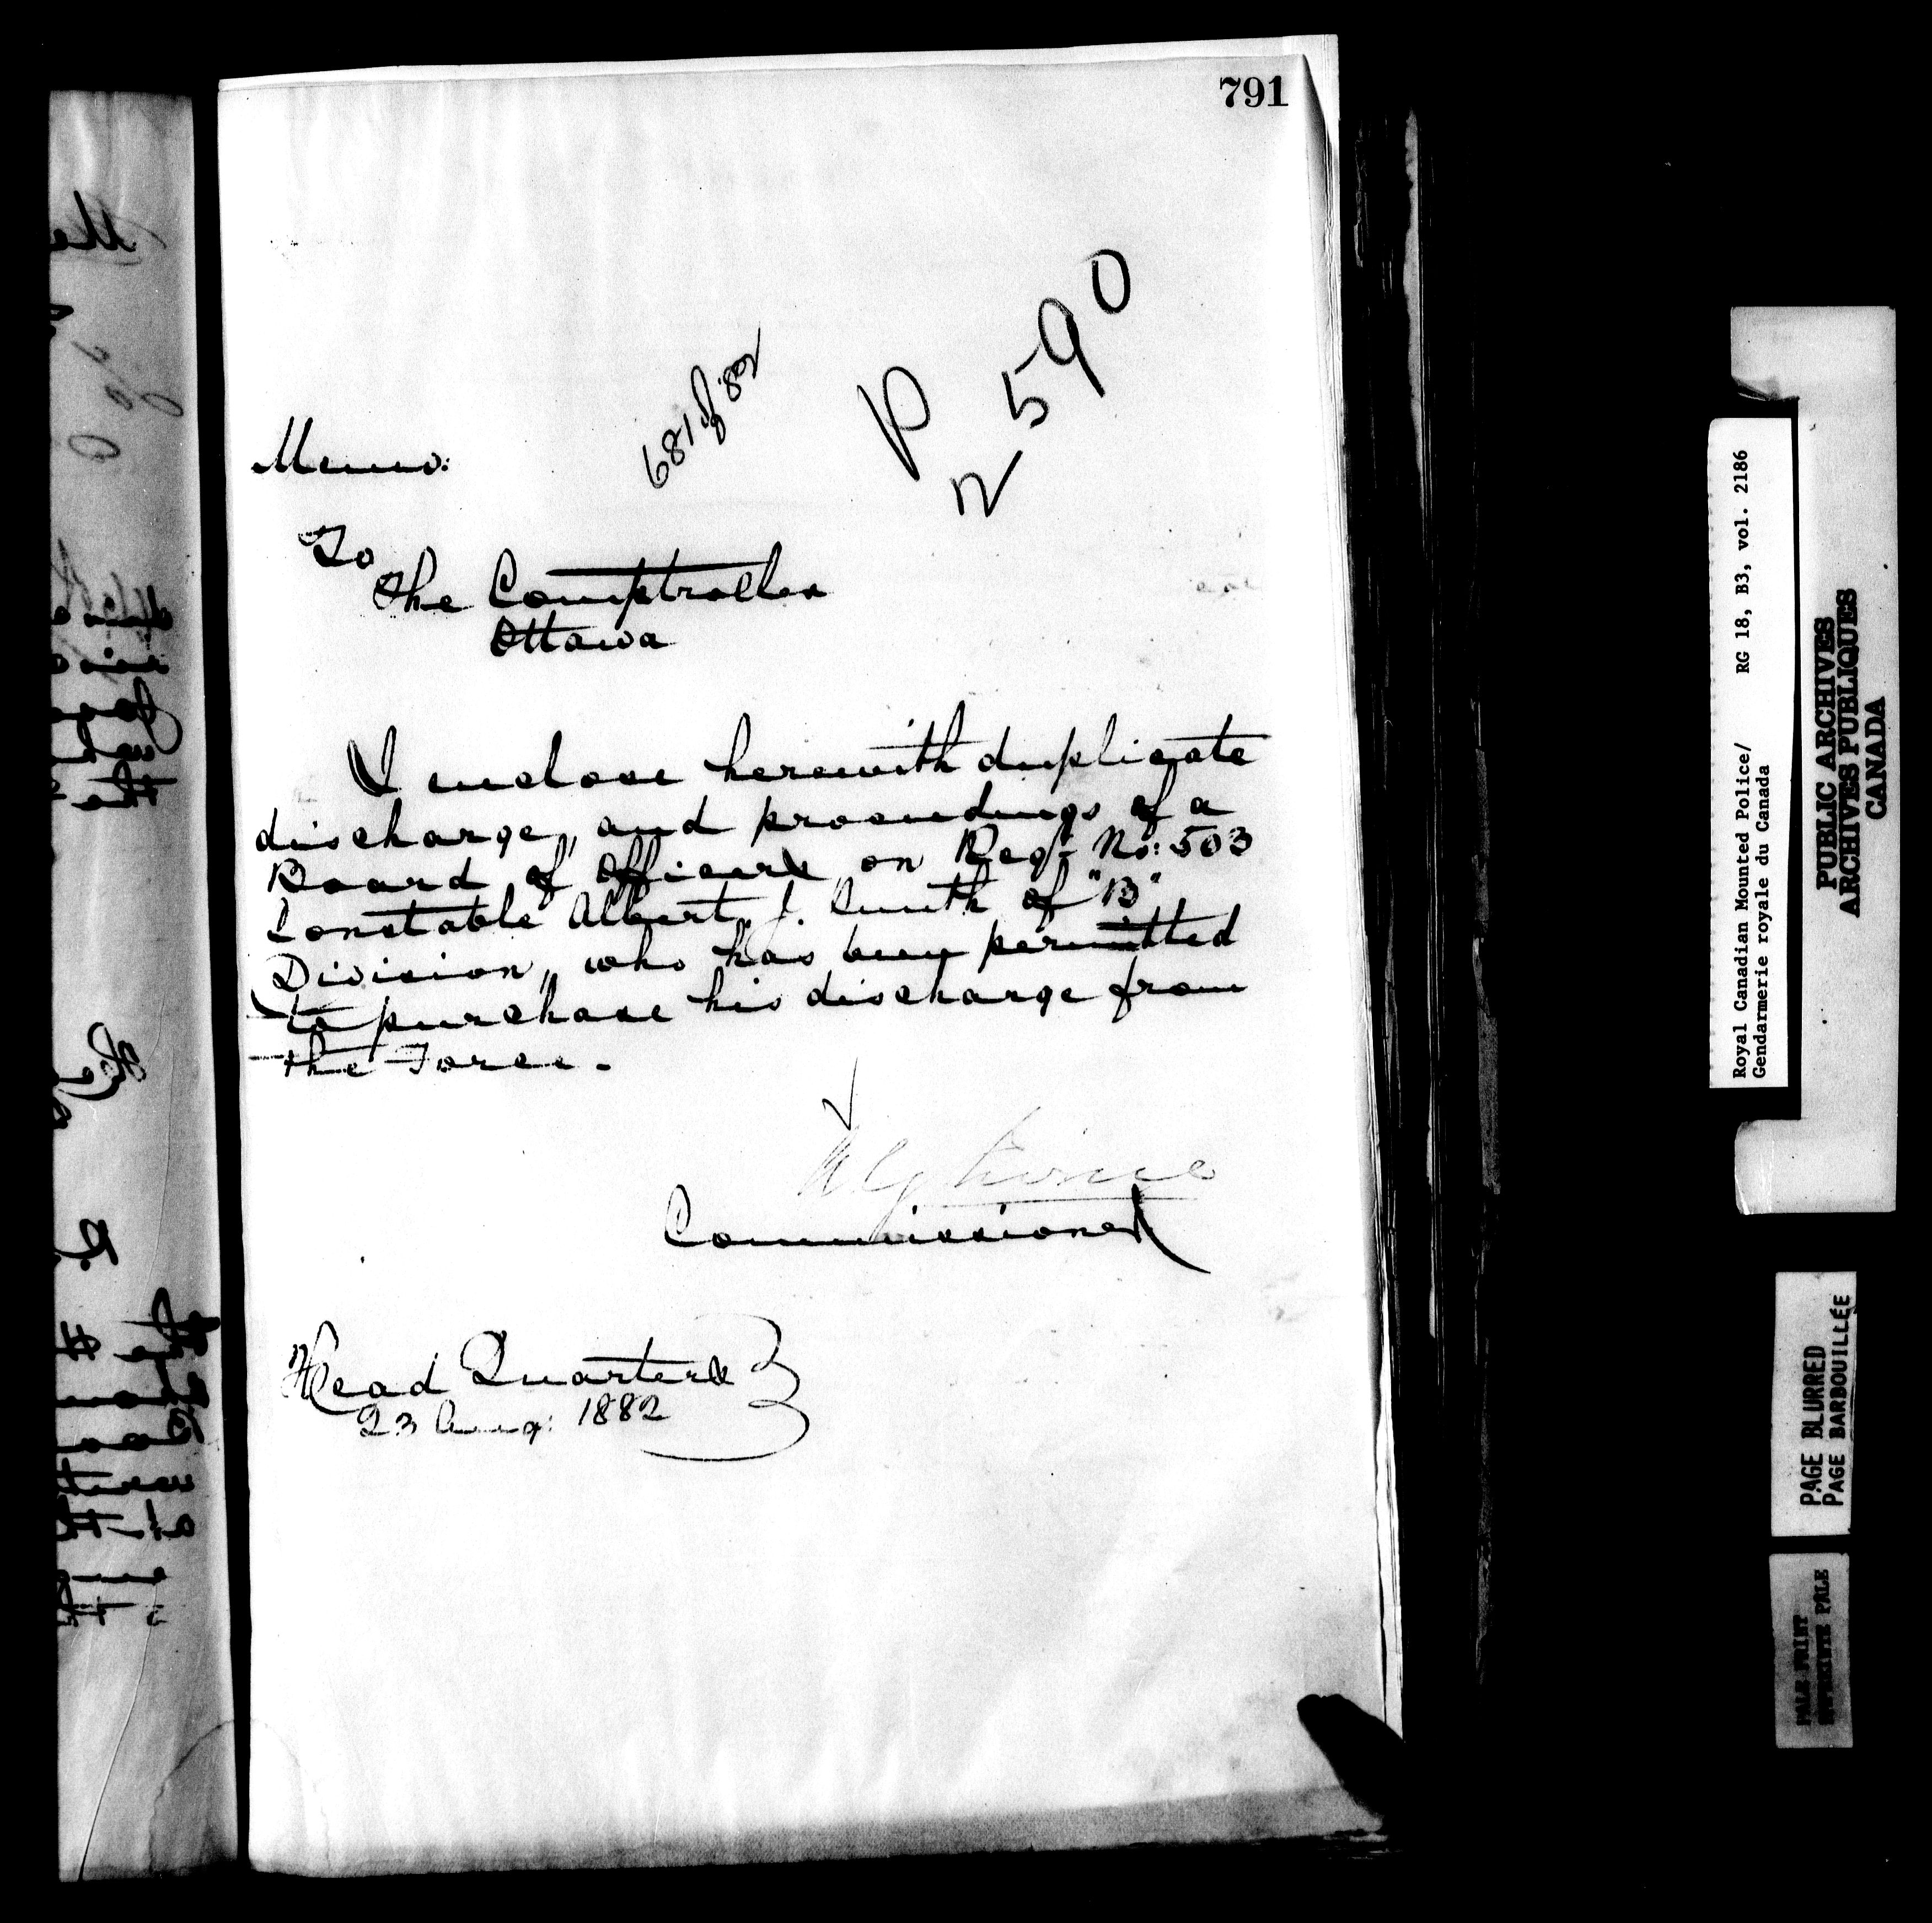 791
681 of 82
P
2590
Memo:
To
The Comptroller
Ottawa
I enclose herewith duplicate
discharge, and proceedings of a
Board of Officers on Regt. No: 503
Constable Albert J. Smith of "B"
Division, who has been permitted
to purchase his discharge from
the Force.
Commissioner
Head Quarters
23 Aug: 1882
Royal Canadian Mounted Police/ RG 18, B3, vol. 2186
Gendarmerie royale du Canada
PUBLIC ARCHIVES
ARCHIVES PUBLIQUES
CANADA
PAGE BLURRED
PAGE BARBOUILLÉE
PALE PRINT
IMPRIMÉE PALE